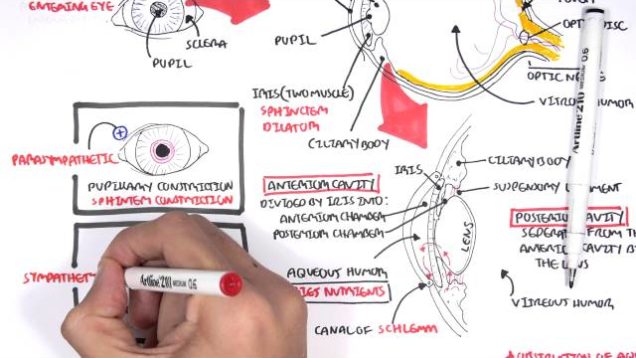 ENTERING EYE
SCLERA
PUPIL
PUPIL
OPTIC DISC
OPTIC
VITREOUS HUMOR
IRIS (TWO MUSCLE)
SPHINCTER
DILATOR
CILIARY BODY
PARASYMPATHETIC
PUPILLARY CONSTRICTION
SPHINCTER CONSTRICTION
IRIS
CILIARY BODY
SUSPENSORY LIGAMENT
ANTERIOR CAVITY
DIVIDED BY IRIS INTO:
ANTERIOR CHAMBER
POSTERIOR CHAMBER
LENS
POSTERIOR CAVITY
FROM
CAVITY
THE LENS
AQUEOUS HUMOR
NUTRIENTS
CANAL OF SCHLEMM
VITREOUS HUMOR
SYMPATHE
Artline 210 MEDIUM 0.6
Artline 210 MEDIUM 0.6